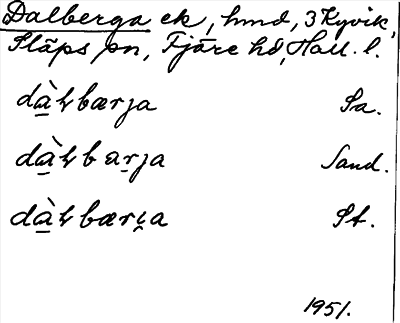 Dalberga ek, hmd, 3 Kyvik,
Släps sn, Fjäre hd, Hall. l.
dàɫbærja Sa.
dàɫbaṟja Sand.
dàɫbærḭa St.
1951.